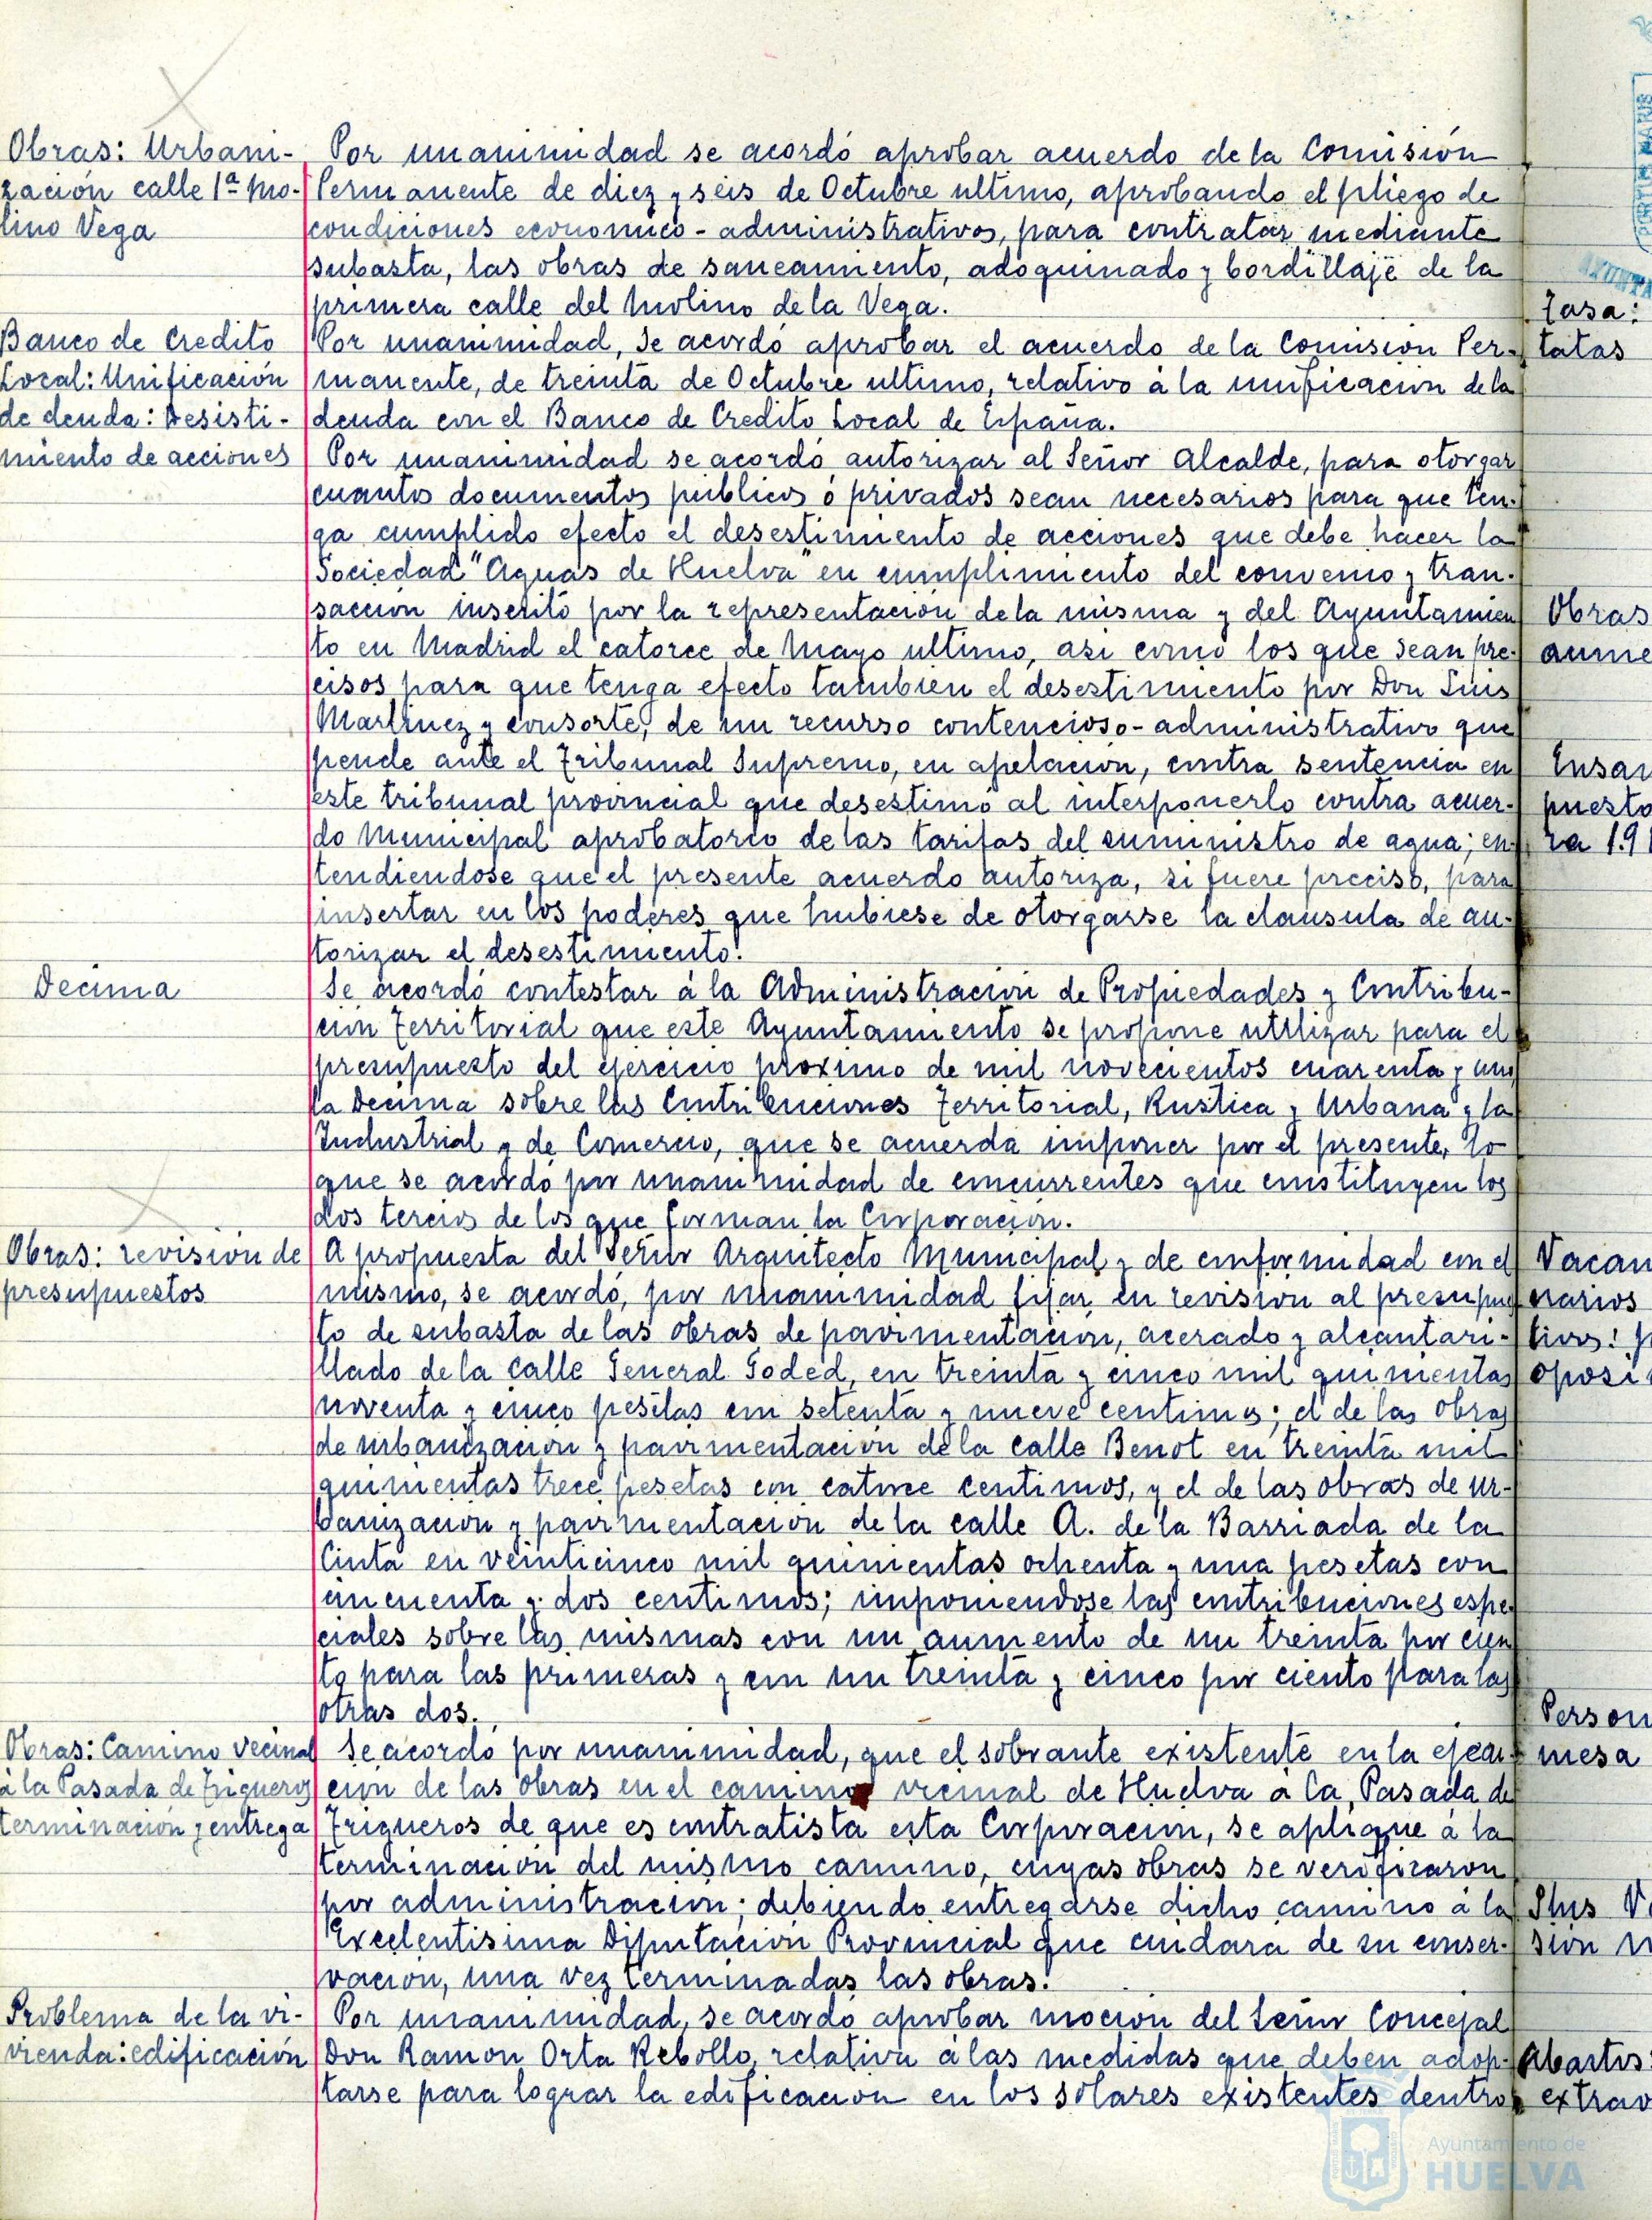 Obras: Urbani-
zación calle 1ª Mo-
lino Vega
Por unanimidad se acordó aprobar acuerdo de la Comisión
Permanente de diez y seis de Octubre ultimo, aprobando el pliego de
condiciones economico-administrativas, para contratar mediante
subasta, las obras de saneamiento, adoquinado y bordillaje de la
primera calle del Molino de la Vega.
Banco de Credito
Local: Unificación
de deuda: Desisti-
miento de acciones
Por unanimidad, se acordó aprobar el acuerdo de la Comisión Per-
manente, de treinta de Octubre ultimo, relativo á la unificación de la
deuda con el Banco de Credito Local de España.
Por unanimidad se acordó autorizar al Señor Alcalde, para otorgar
cuantos documentos publicos ó privados sean necesarios para que ten-
ga cumplido efecto el desestimiento de acciones que debe hacer la
Sociedad "Aguas de Huelva" en cumplimiento del convenio y tran-
sacción inscrito por la representación de la misma y del Ayuntamien
to en Madrid el catorce de Mayo ultimo, asi como los que sean pre-
cisos para que tenga efecto tambien el desestimiento por Don Luis
Martinez y consorte, de un recurso contencioso-administrativo que
pende ante el Tribunal Supremo, en apelación, contra sentencia en
este tribunal provincial que desestimó al interponerlo contra acuer-
do Municipal aprobatorio de las tarifas del suministro de agua; en-
tendiendose que el presente acuerdo autoriza, si fuere preciso, para
insertar en los poderes que hubiese de otorgarse la clausula de au-
torizar el desestimiento.
Decima
Se acordó contestar á la Administración de Propiedades y Contribu-
ción Territorial que este Ayuntamiento se propone utilizar para el
presupuesto del ejercicio proximo de mil novecientos cuarenta y uno
la Decima sobre las Contribuciones Territorial, Rustica y Urbana y la
Industrial y de Comercio, que se acuerda imponer por el presente, lo
que se acordó por unanimidad de concurrentes que constituyen los
dos tercios de los que forman la Corporación.
Obras: revisión de
presupuestos
A propuesta del Señor Arquitecto Municipal y de conformidad con el
mismo, se acordó, por unanimidad fijar en revisión al presupues
to de subasta de las obras de pavimentación, acerado y alcantari-
llado de la calle General Goded, en treinta y cinco mil quinientas
noventa y cinco pesetas con setenta y nueve centimos; el de las obras
de urbanización y pavimentación de la calle Benot en treinta mil
quinientas trece pesetas con catorce centimos, y el de las obras de ur-
banización y pavimentación de la calle A. de la Barriada de la
Cinta en veinticinco mil quinientas ochenta y una pesetas con
cincuenta y dos centimos; imponiendose las contribuciones espe-
ciales sobre las mismas con un aumento de un treinta por cien
to para las primeras y con un treinta y cinco por ciento para las
otras dos.
Obras: Camino vecinal
á la Pasada de Trigueros
terminación y entrega
Se acordó por unanimidad, que el sobrante existente en la ejecu-
ción de las obras en el camino vecinal de Huelva á la Pasada de
Trigueros de que es contratista esta Corporación, se aplique á la
terminación del mismo camino, cuyas obras se verificaron
por administración; debiendo entregarse dicho camino á la
Excelentisima Diputación Provincial que cuidara de su conser-
vación, una vez terminadas las obras.
Problema de la vi-
vienda: edificación
Por unanimidad, se acordó aprobar moción del Señor Concejal
Don Ramon Orta Rebollo, relativa á las medidas que deben adop-
tarse para lograr la edificación en los solares existentes dentro
Tasa:
tatas
Obras
aume
Ensan
puesto
ra 19
Vacan
narios
tivos:
oposi
Person
mesa
sion
Abastos
extrao
Ayuntamiento de
HUELVA